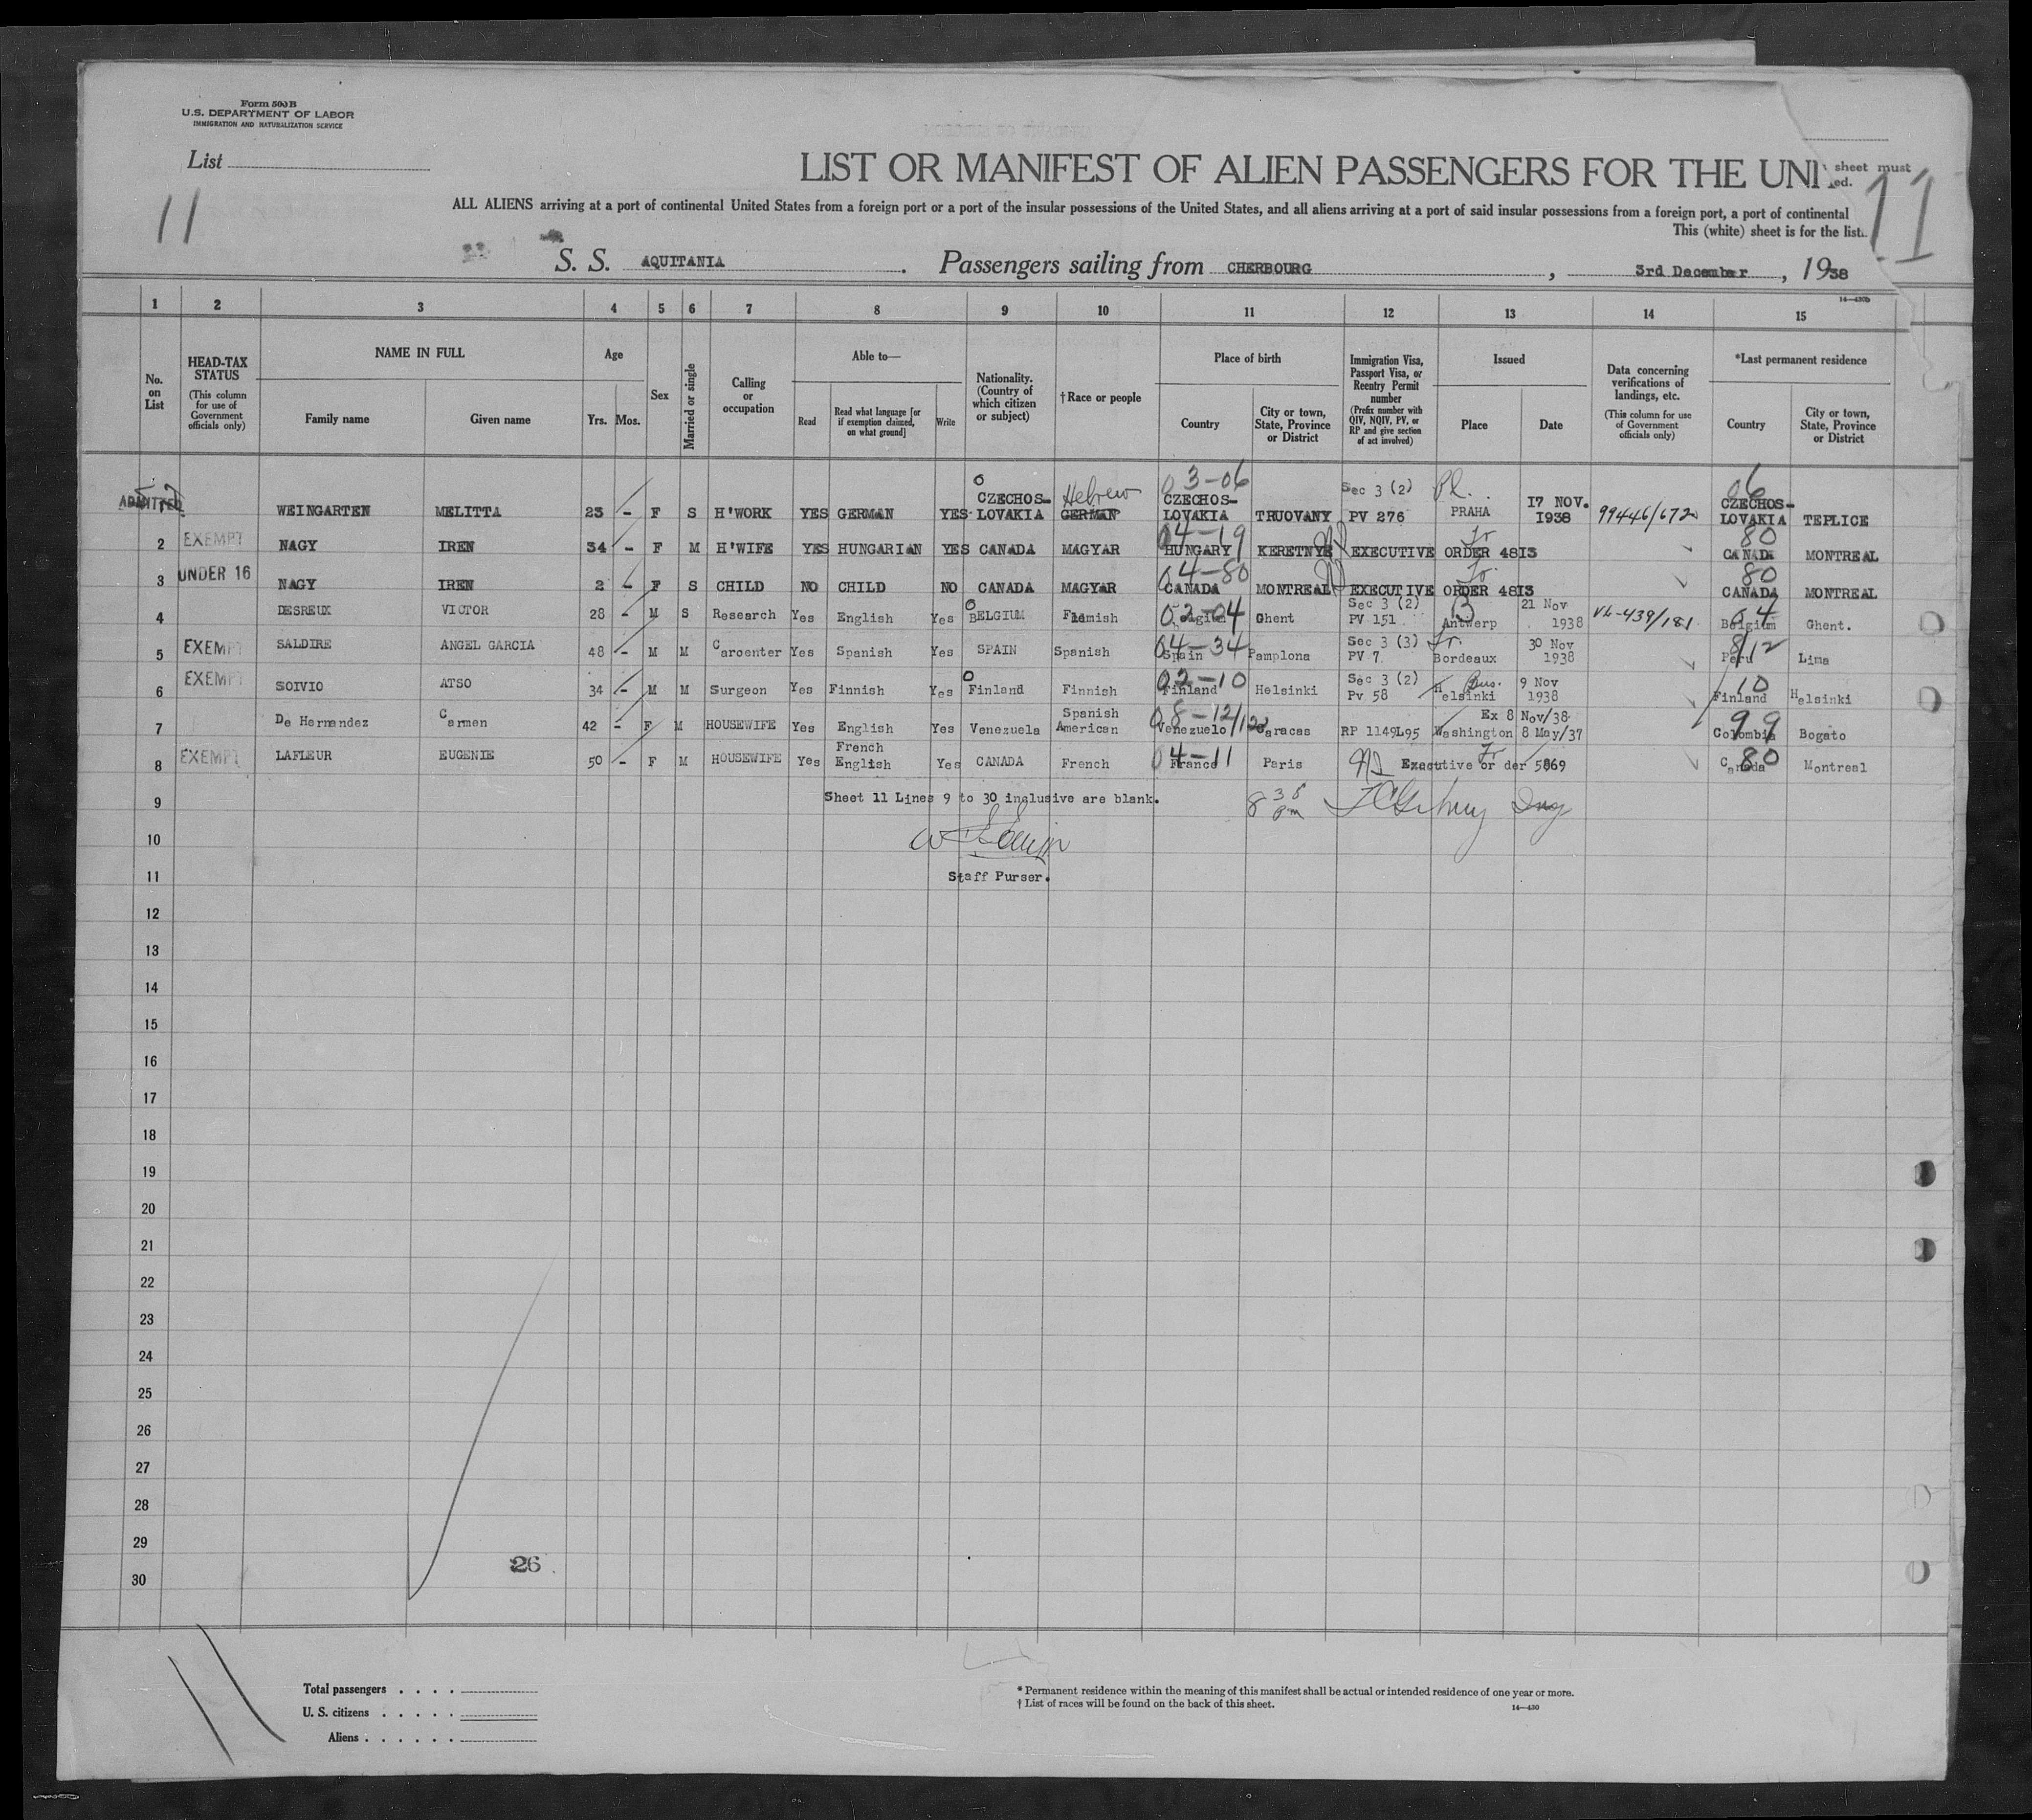 Form 500 B
U.S. DEPARTMENT OF LABOR
IMMIGRATION AND NATURALIZATION SERVICE
List
11
LIST OR MANIFEST OF ALIEN PASSENGERS FOR THE UNI
sheet must
ed.
11
ALL ALIENS arriving at a port of continental United States from a foreign port or a port of the insular possessions of the United States, and all aliens arriving at a port of said insular possessions from a foreign port, a port of continental
This (white) sheet is for the list
S. S. AQUITANIA . Passengers sailing from CHERBOURG , 3rd December , 1938
14—430b
1 2 3 4 5 6 7 8 9 10 11 12 13 14 15
No. on List
HEAD-TAX STATUS (This column for use of Government officials only)
NAME IN FULL
Family name Given name
Age
Yrs. Mos.
Sex
Married or single
Calling or occupation
Able to—
Read Read what language [or if exemption claimed, on what ground] Write
Nationality. (Country of which citizen or subject)
†Race or people
Place of birth
Country City or town, State, Province or District
Immigration Visa, Passport Visa, or Reentry Permit number (Prefix number with QIV, NQIV, PV, or RP and give section of act involved)
Issued
Place Date
Data concerning verifications of landings, etc. (This column for use of Government officials only)
*Last permanent residence
Country City or town, State, Province or District
ADMITTED 1 WEINGARTEN MELITTA 23 - F S H'WORK YES GERMAN YES CZECHOS-LOVAKIA Hebrew GERMAN 03-06 CZECHOS-LOVAKIA TRUOVANY Sec 3 (2) PV 276 Pl. PRAHA 17 NOV. 1938 99446/672 06 CZECHOS-LOVAKIA TEPLICE
2 EXEMPT NAGY IREN 34 - F M H'WIFE YES HUNGARIAN YES CANADA MAGYAR 04-19 HUNGARY KERETNYE EXECUTIVE ORDER 4813 Tr 80 CANADA MONTREAL
3 UNDER 16 NAGY IREN 2 - F S CHILD NO CHILD NO CANADA MAGYAR 04-80 CANADA MONTREAL EXECUTIVE ORDER 4813 Tr. 80 CANADA MONTREAL
4 DESREUX VICTOR 28 - M S Research Yes English Yes BELGIUM Flemish 02-04 Belgium Ghent Sec 3 (2) PV 151 B Antwerp 21 Nov 1938 Vh-439/181 04 Belgium Ghent.
5 EXEMPT SALDIRE ANGEL GARCIA 48 - M M Carpenter Yes Spanish Yes SPAIN Spanish 04-34 Spain Pamplona Sec 3 (3) PV 7. Tr. Bordeaux 30 Nov 1938 8/12 Peru Lima
6 EXEMPT SOIVIO ATSO 34 - M M Surgeon Yes Finnish Yes Finland Finnish 02-10 Finland Helsinki Sec 3 (2) Pv 58 Bus. Helsinki 9 Nov 1938 10 Finland Helsinki
7 De Hernandez Carmen 42 - F M HOUSEWIFE Yes English Yes Venezuela Spanish American 08-12/12 Venezuelo Caracas RP 1149L95 Washington Ex 8 Nov/38 8 May/37 99 Colombia Bogato
8 EXEMPT LAFLEUR EUGENIE 50 - F M HOUSEWIFE Yes French English Yes CANADA French 04-11 France Paris Executive Order 5869 Tr 80 Canada Montreal
9 Sheet 11 Lines 9 to 30 inclusive are blank. 8 38 pm
10
11 Staff Purser.
12
13
14
15
16
17
18
19
20
21
22
23
24
25
26
27
28
29
30
26
11
Total passengers . . . .
U. S. citizens . . . . .
Aliens . . . . . .
* Permanent residence within the meaning of this manifest shall be actual or intended residence of one year or more.
† List of races will be found on the back of this sheet.
14—430